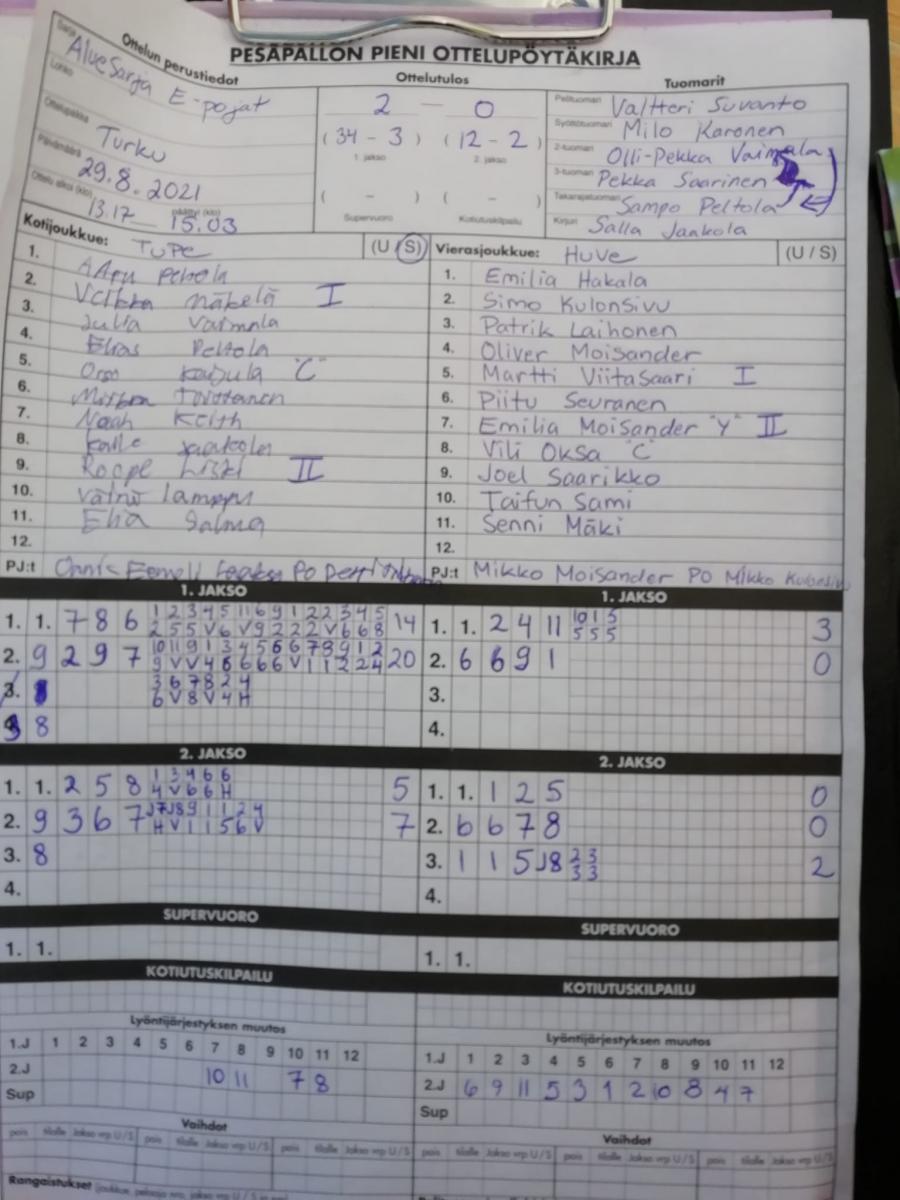 PESÄPALLON PIENI OTTELUPÖYTÄKIRJA
Ottelun perustiedot
Sarja AlueSarja E-pojat
Lohko
Ottelupaikka Turku
Päivämäärä 29.8.2021
Ottelu alkoi (klo) 13.17 päättyi (klo) 15.03
Ottelutulos
2 - 0
(34 - 3) (12 - 2)
1. jakso 2. jakso
( - ) ( - )
Supervuoro Kotiutuskilpailu
Tuomarit
Pelituomari Valtteri Suvanto
Syöttötuomari Milo Karonen
2-tuomari Olli-Pekka Vaimala
3-tuomari Pekka Saarinen
Takarajatuomari Sampo Peltola
Kirjuri Salla Jaakola
Kotijoukkue: TuPe (U / S)
1. AApu Peltola
2. Mäkelä I
3. Julia Vaimala
4. Elias Peltola
5. "C"
6.
7. Noah Keith
8. Kalle Jaakola
9. Roope II
10. Väinö Lamppu
11.
12.
PJ:t
Vierasjoukkue: HuVe (U / S)
1. Emilia Hakala
2. Simo Kulonsivu
3. Patrik Laihonen
4. Oliver Moisander
5. Martti Viitasaari I
6. Piitu Seuranen
7. Emilia Moisander "Y" II
8. Vili Oksa "C"
9. Joel Saarikko
10. Taifun Sami
11. Senni Mäki
12.
PJ:t Mikko Moisander PO Mikko Kulonsivu
1. JAKSO
1 2 3 4 5 11 6 9 1 2 2 3 4 5
1. 1. 7 8 6 2 5 5 V 6 V 9 2 2 2 V 6 6 8 14
10 11 9 1 3 4 5 6 6 7 8 9 1 2
2. 9 2 9 7 9 V V 4 6 6 6 6 V 1 1 2 2 4 20
3 6 7 8 2 4
3. 6 V 8 V 4 H
8
1. JAKSO
10 1 5
1. 1. 2 4 11 5 5 5 3
2. 6 6 9 1 0
3.
4.
2. JAKSO
1 3 4 6 6
1. 1. 2 5 8 4 V 6 6 H 5
J7 J8 9 1 1 2 4
2. 9 3 6 7 H V 1 1 5 6 V 7
3. 8
4.
2. JAKSO
1. 1. 1 2 5 0
2. 6 6 7 8 0
2 3
3. 1 1 5 J8 3 3 2
4.
SUPERVUORO
1. 1.
SUPERVUORO
1. 1.
KOTIUTUSKILPAILU
KOTIUTUSKILPAILU
Lyöntijärjestyksen muutos
1.J 1 2 3 4 5 6 7 8 9 10 11 12
2.J 10 11 7 8
Sup
Lyöntijärjestyksen muutos
1.J 1 2 3 4 5 6 7 8 9 10 11 12
2.J 6 9 11 5 3 1 2 10 8 4 7
Sup
Vaihdot
pois tilalle Jakso vrp U / S pois tilalle Jakso vrp U / S pois tilalle Jakso vrp U / S
Vaihdot
pois tilalle Jakso vrp U / S pois tilalle Jakso vrp U / S pois tilalle Jakso vrp U / S
Rangaistukset